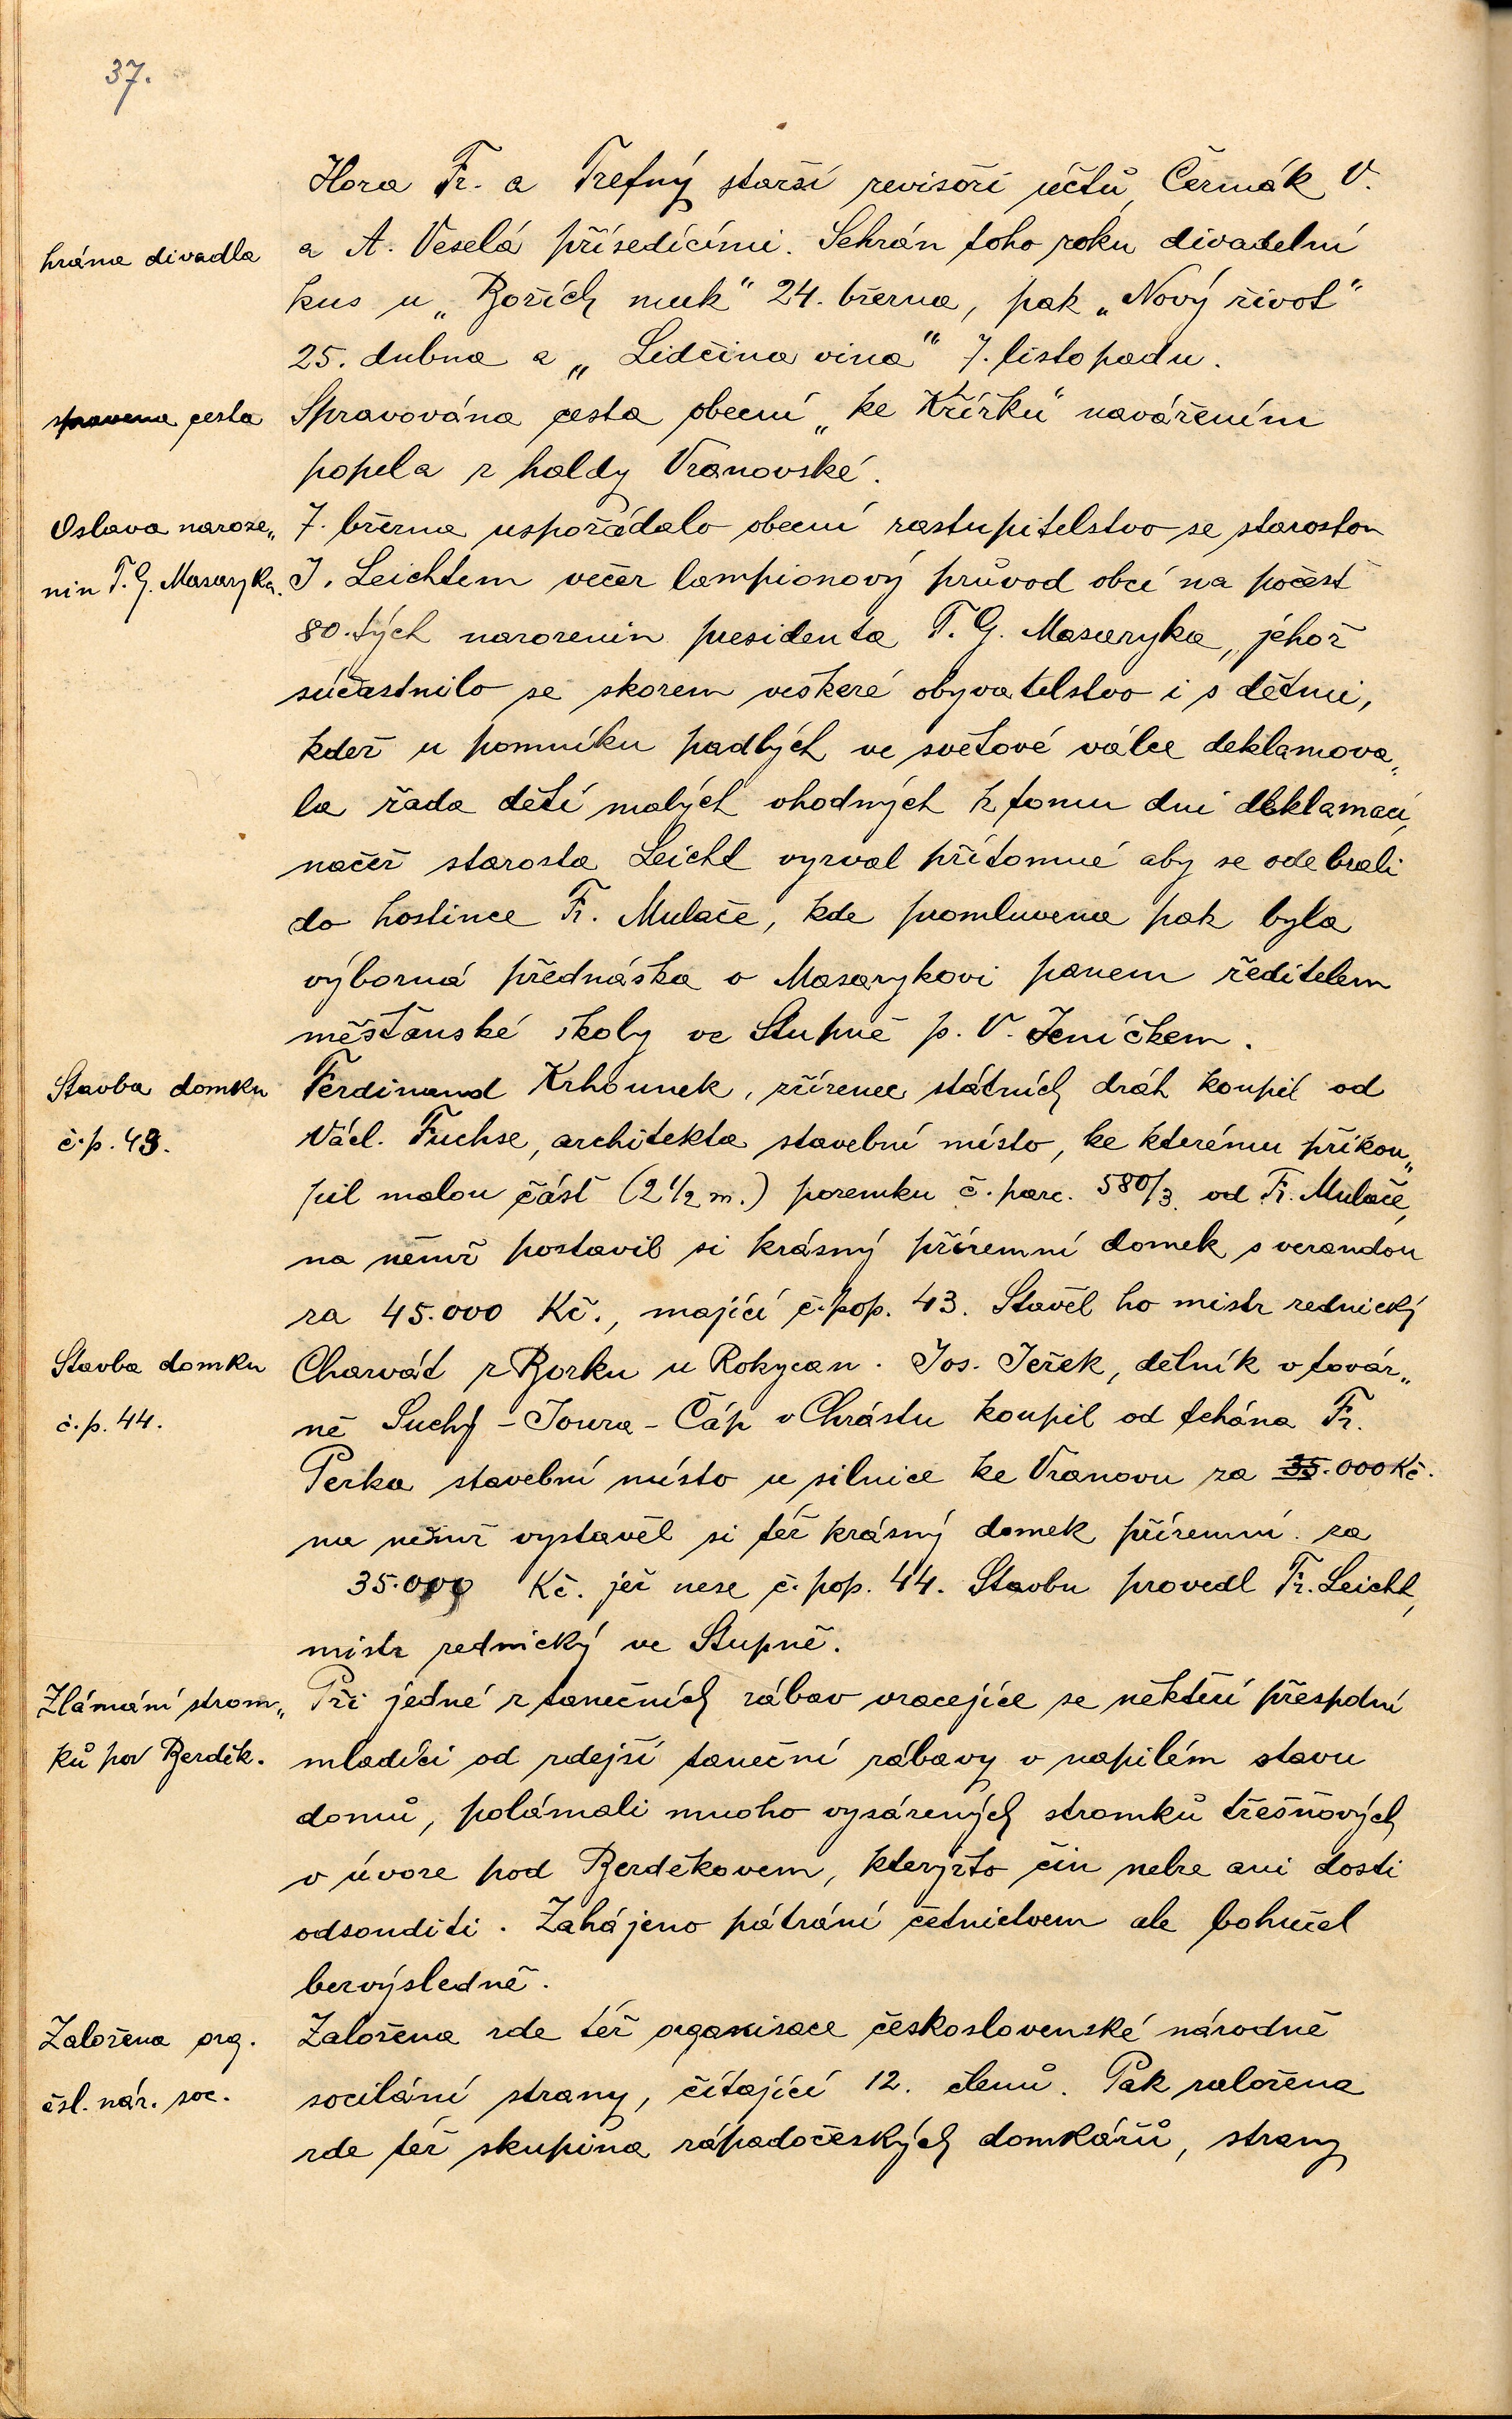 37.
Hora Fr. a Trefný starší revisoři účtů, Čermák V.
hrána divadla
a A. Veselá přísedícími. Sehrán toho roku divadelní
kus u „Božích muk" 24. března, pak „Nový život"
25. dubna a „Lidčina vina" 7. listopadu.
spravena cesta
Spravována cesta obecní „ke Křížku" navážením
popela z haldy Vranovské.
Oslava naroze„
7. března uspořádalo obecní zastupitelstvo se starostou
nin T. G. Masaryka.
J. Leichtem večer lampionový průvod obcí na počest
80.tých narozenin presidenta T. G. Masaryka, jehož
súčastnilo se skorem veškeré obyvatelstvo i s dětmi,
kdež u pomníku padlých ve světové válce deklamova„
la řada dětí malých vhodných k tomu dni deklamací,
načež starosta Leicht vyzval přítomné aby se odebrali
do hostince Fr. Mulače, kde promluvena pak byla
výborná přednáška o Masarykovi panem ředitelem
měšťanské školy ve Stupně p. V. Jeníčkem.
Stavba domku
Ferdinand Krhounek, zřízenec státních drah koupil od
č.p. 43.
Václ. Fuchse, architekta stavební místo, ke kterému přikou„
pil malou část (2 1/2 m.) pozemku č. parc. 580/3. od Fr. Mulače,
na němž postavil si krásný přízemní domek s verandou
za 45.000 Kč., mající č. pop. 43. Stavěl ho mistr zednický
Stavba domku
Charvát z Borku u Rokycan. Jos. Ježek, dělník v továr„
č.p. 44.
ně Suchý - Joura - Čáp v Chrástu koupil od tchána Fr.
Perka stavební místo u silnice ke Vranovu za 35.000 Kč.
na němž vystavěl si též krásný domek přízemní za
35.000 Kč. jež nese č. pop. 44. Stavbu provedl Fr. Leicht,
mistr zednický ve Stupně.
Zlámání strom„
Při jedné z tanečních zábav vracejíce se někteří přespolní
ků pod Berděk.
mladíci od zdejší taneční zábavy v napilém stavu
domů, polámali mnoho vysázených stromků třešňových
v úvoze pod Berděkovem, kterýžto čin nelze ani dosti
odsouditi. Zahájeno pátrání četnictvem ale bohužel
bezvýsledně.
Založena org.
Založena zde též organisace československé národně
čsl. nár. soc.
socilání strany, čítající 12. členů. Pak založena
zde též skupina západočeských domkářů, strany